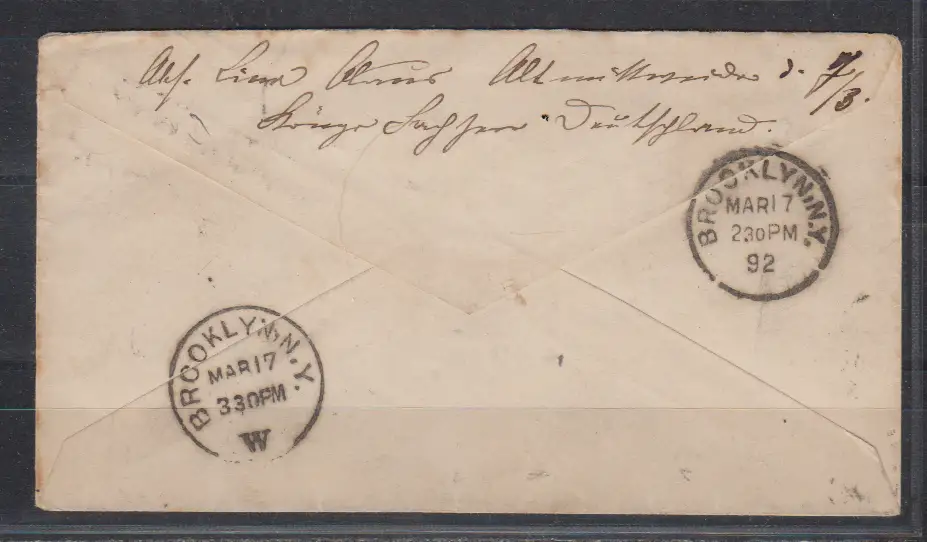 Abs. Altmittweida d. 7/3.
Königr Sachsen Deutschland.
BROOKLYN, N.Y.
MAR 17
230 PM
92
BROOKLYN, N.Y.
MAR 17
330 PM
W